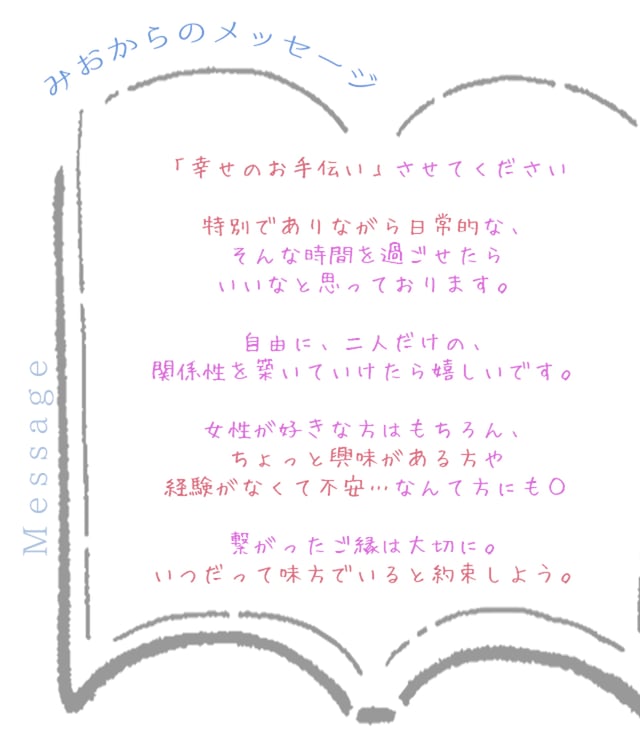 みおからのメッセージ
「幸せのお手伝い」させてください
特別でありながら日常的な、
そんな時間を過ごせたら
いいなと思っております。
自由に、二人だけの、
関係性を築いていけたら嬉しいです。
女性が好きな方はもちろん、
ちょっと興味がある方や
経験がなくて不安…なんて方にも〇
繋がったご縁は大切に。
いつだって味方でいると約束しよう。
Message